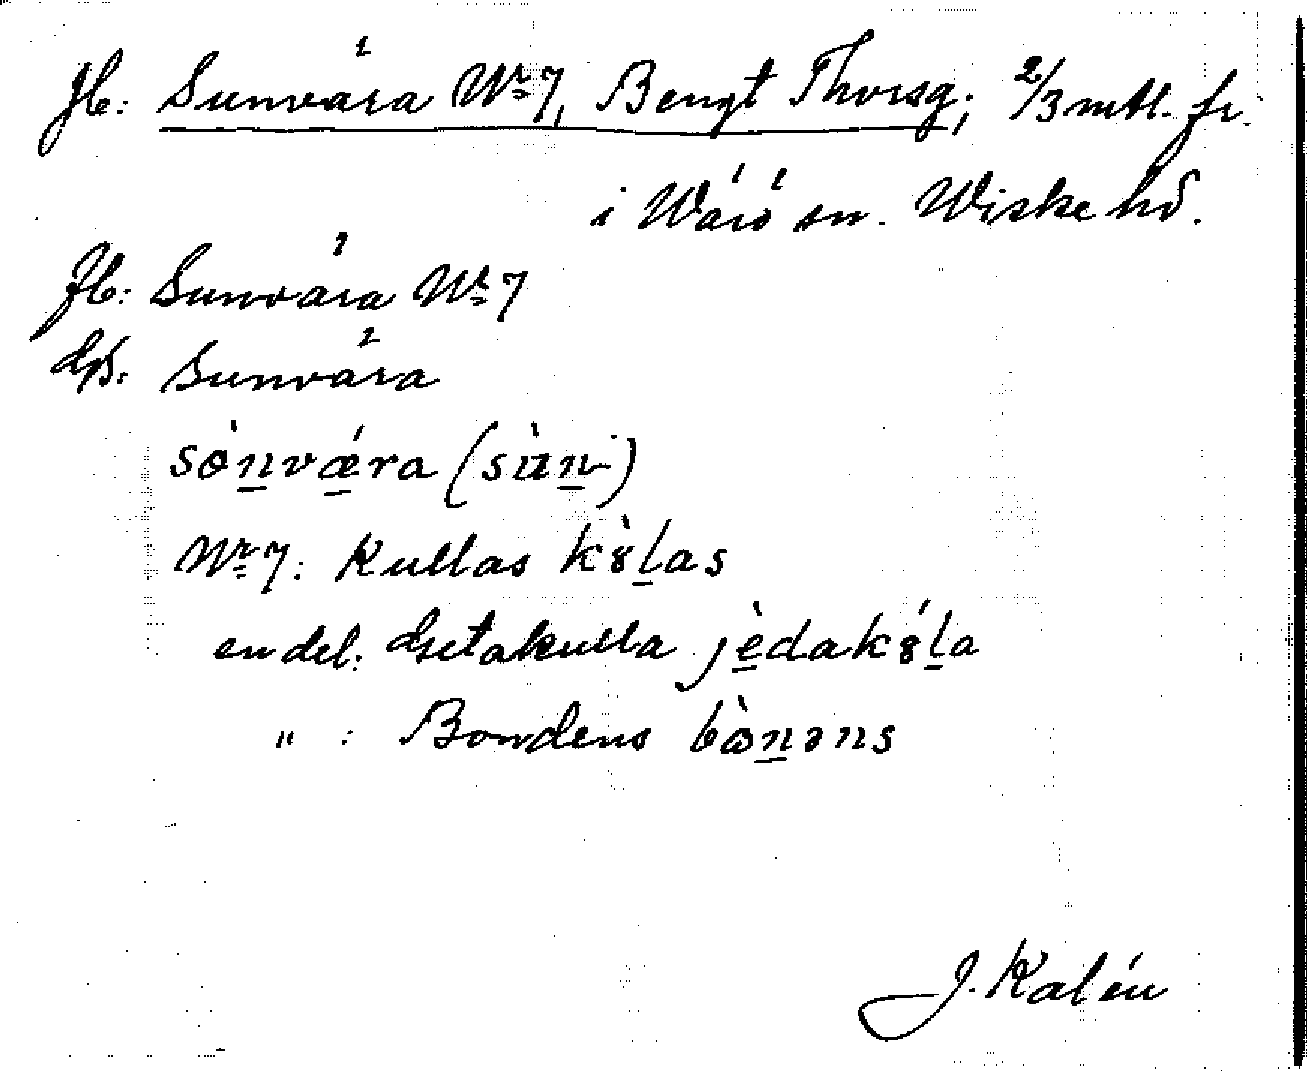 Jb: Sunvära Nr 7, Bengt Thorsg; 2/3 mtl. fr.
i Wärö sn. Wiske hd.
Fb: Sunvära Nr 7
Ds. Sunvära
sònvǽra (sùn-)
Nr 7: Kullas kȣ̀las
en del: Getakulla jèdakȣ́la
" : Bondens bɷ̀nəns
J. Kalén